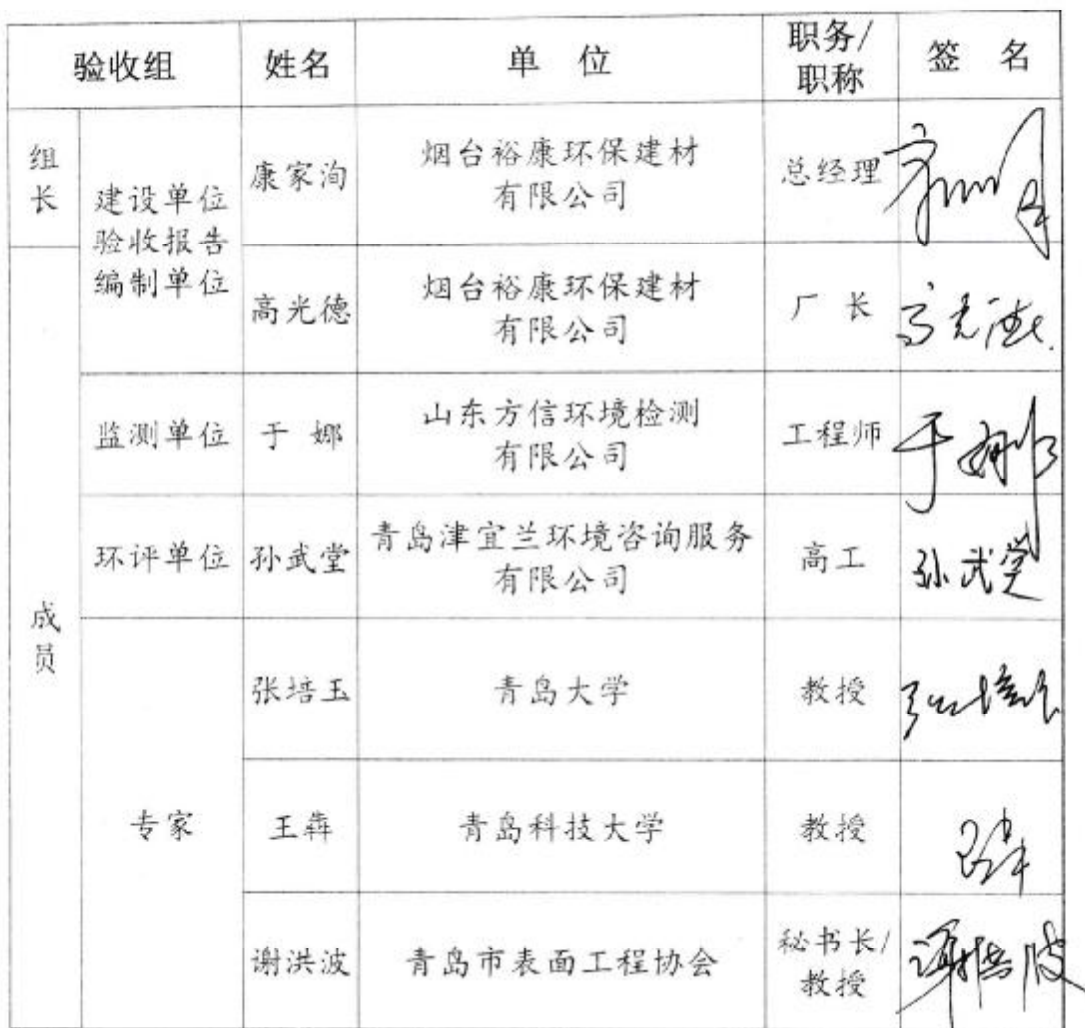 验收组 姓名 单 位 职务/职称 签 名
组长 建设单位验收报告编制单位 康家洵 烟台裕康环保建材有限公司 总经理
成员 高光德 烟台裕康环保建材有限公司 厂 长 高光德
监测单位 于 娜 山东方信环境检测有限公司 工程师 于娜
环评单位 孙武堂 青岛津宜兰环境咨询服务有限公司 高工 孙武堂
专家 张培玉 青岛大学 教授 张培玉
王犇 青岛科技大学 教授
谢洪波 青岛市表面工程协会 秘书长/教授 谢洪波